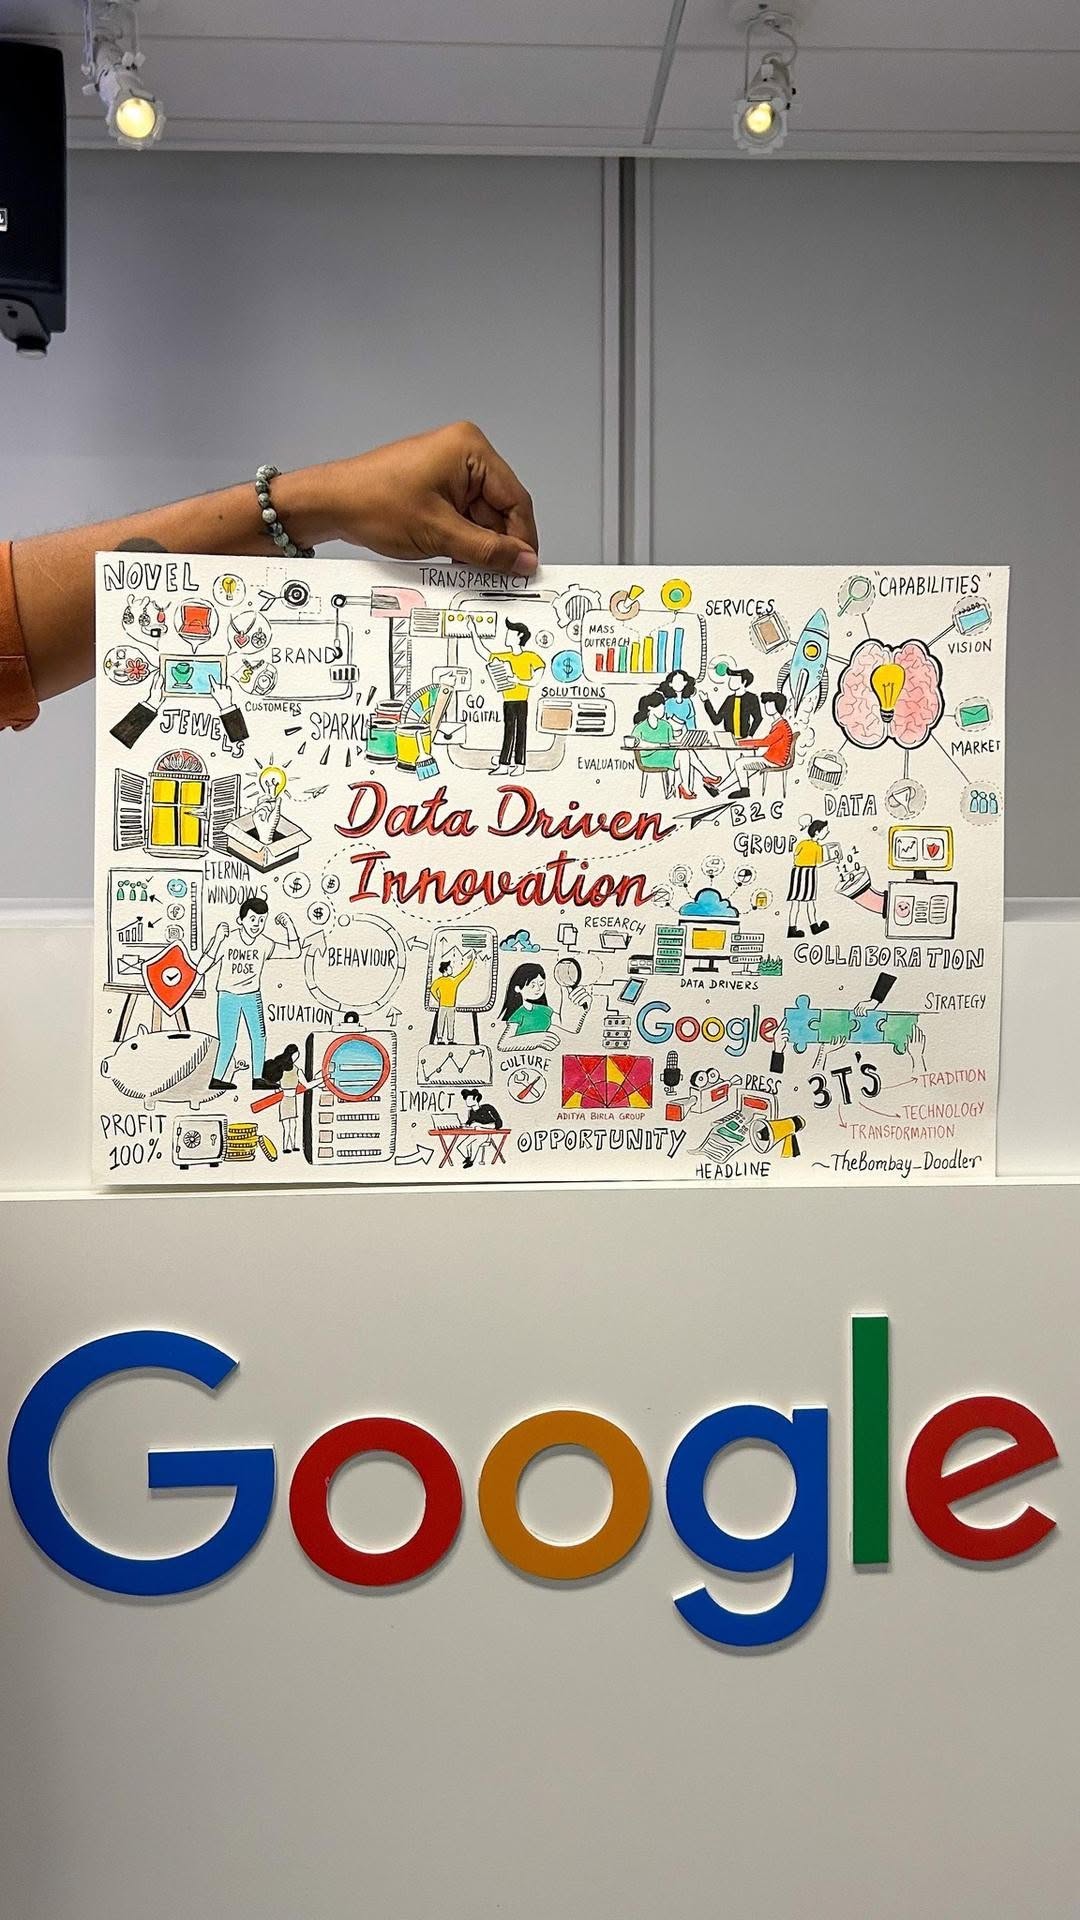 TRANSPARENCY
NOVEL
"CAPABILITIES"
SERVICES
MASS
OUTREACH
VISION
BRAND
CUSTOMERS
JEWELS
SPARKLE
GO
DIGITAL
SOLUTIONS
EVALUATION
MARKET
Data Driven
Innovation
B2C
GROUP
DATA
ETERNIA
WINDOWS
POWER
POSE
BEHAVIOUR
RESEARCH
DATA DRIVERS
COLLABORATION
SITUATION
Google
STRATEGY
CULTURE
IMPACT
ADITYA BIRLA GROUP
PRESS
3T'S
TRADITION
TECHNOLOGY
TRANSFORMATION
PROFIT
100%
OPPORTUNITY
HEADLINE
~TheBombay_Doodler
Google